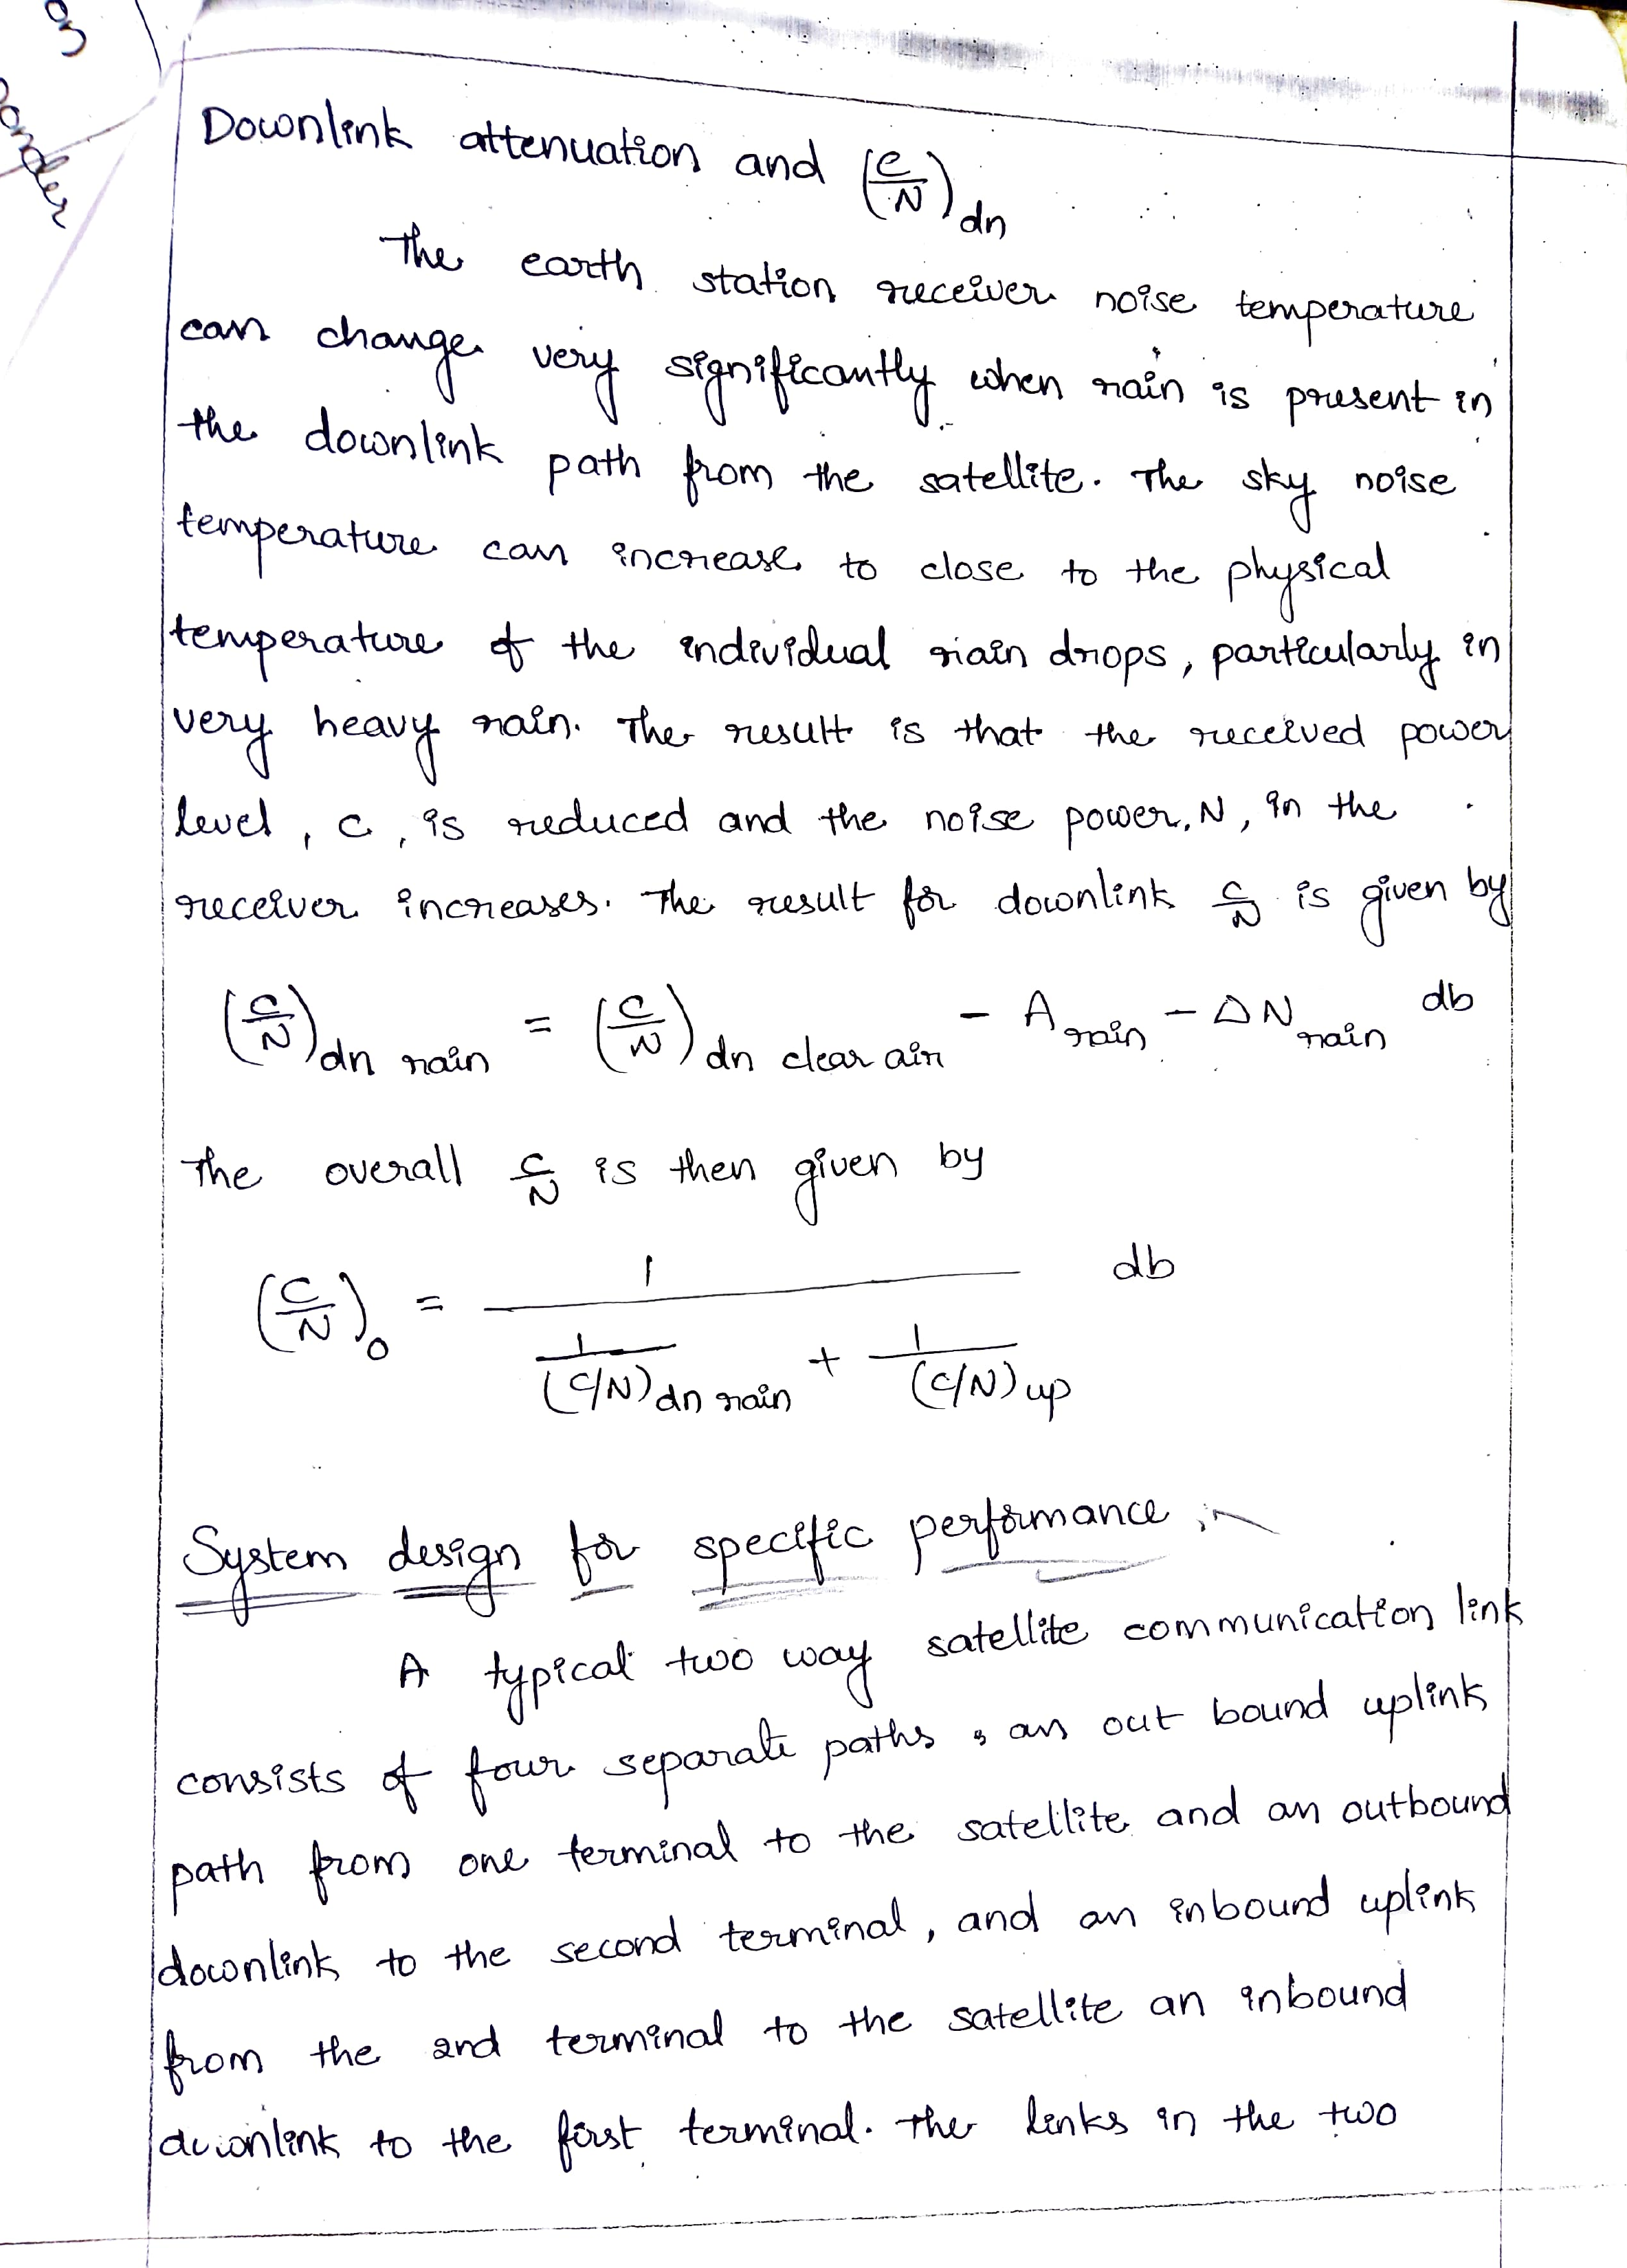 Downlink attenuation and (C/N)dn
The earth station receiver noise temperature
can change very significantly when rain is present in
the downlink path from the satellite. The sky noise
temperature can increase to close to the physical
temperature of the individual rain drops, particularly in
very heavy rain. The result is that the received power
level, C, is reduced and the noise power, N, in the
receiver increases. The result for downlink C/N is given by
(C/N)dn rain = (C/N)dn clear air - A rain - ΔN rain db
The overall C/N is then given by
(C/N)o = 1 / (1/(C/N)dn rain + 1/(C/N)up) db
System design for specific performance :-
A typical two way satellite communication link
consists of four separate paths, an out bound uplink
path from one terminal to the satellite and an outbound
downlink to the second terminal, and an inbound uplink
from the 2nd terminal to the satellite an inbound
downlink to the first terminal. The links in the two